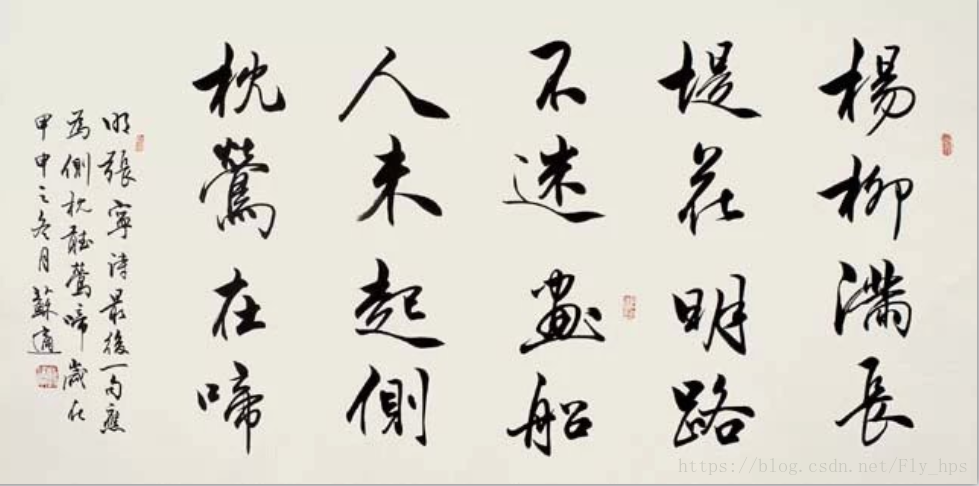 楊柳滿長
堤花明路
不迷畫船
人未起側
枕鶯在啼
明張寧詩最後一句應
為側枕聽鶯啼歲在
甲申之冬月蘇適
https://blog.csdn.net/Fly_hps